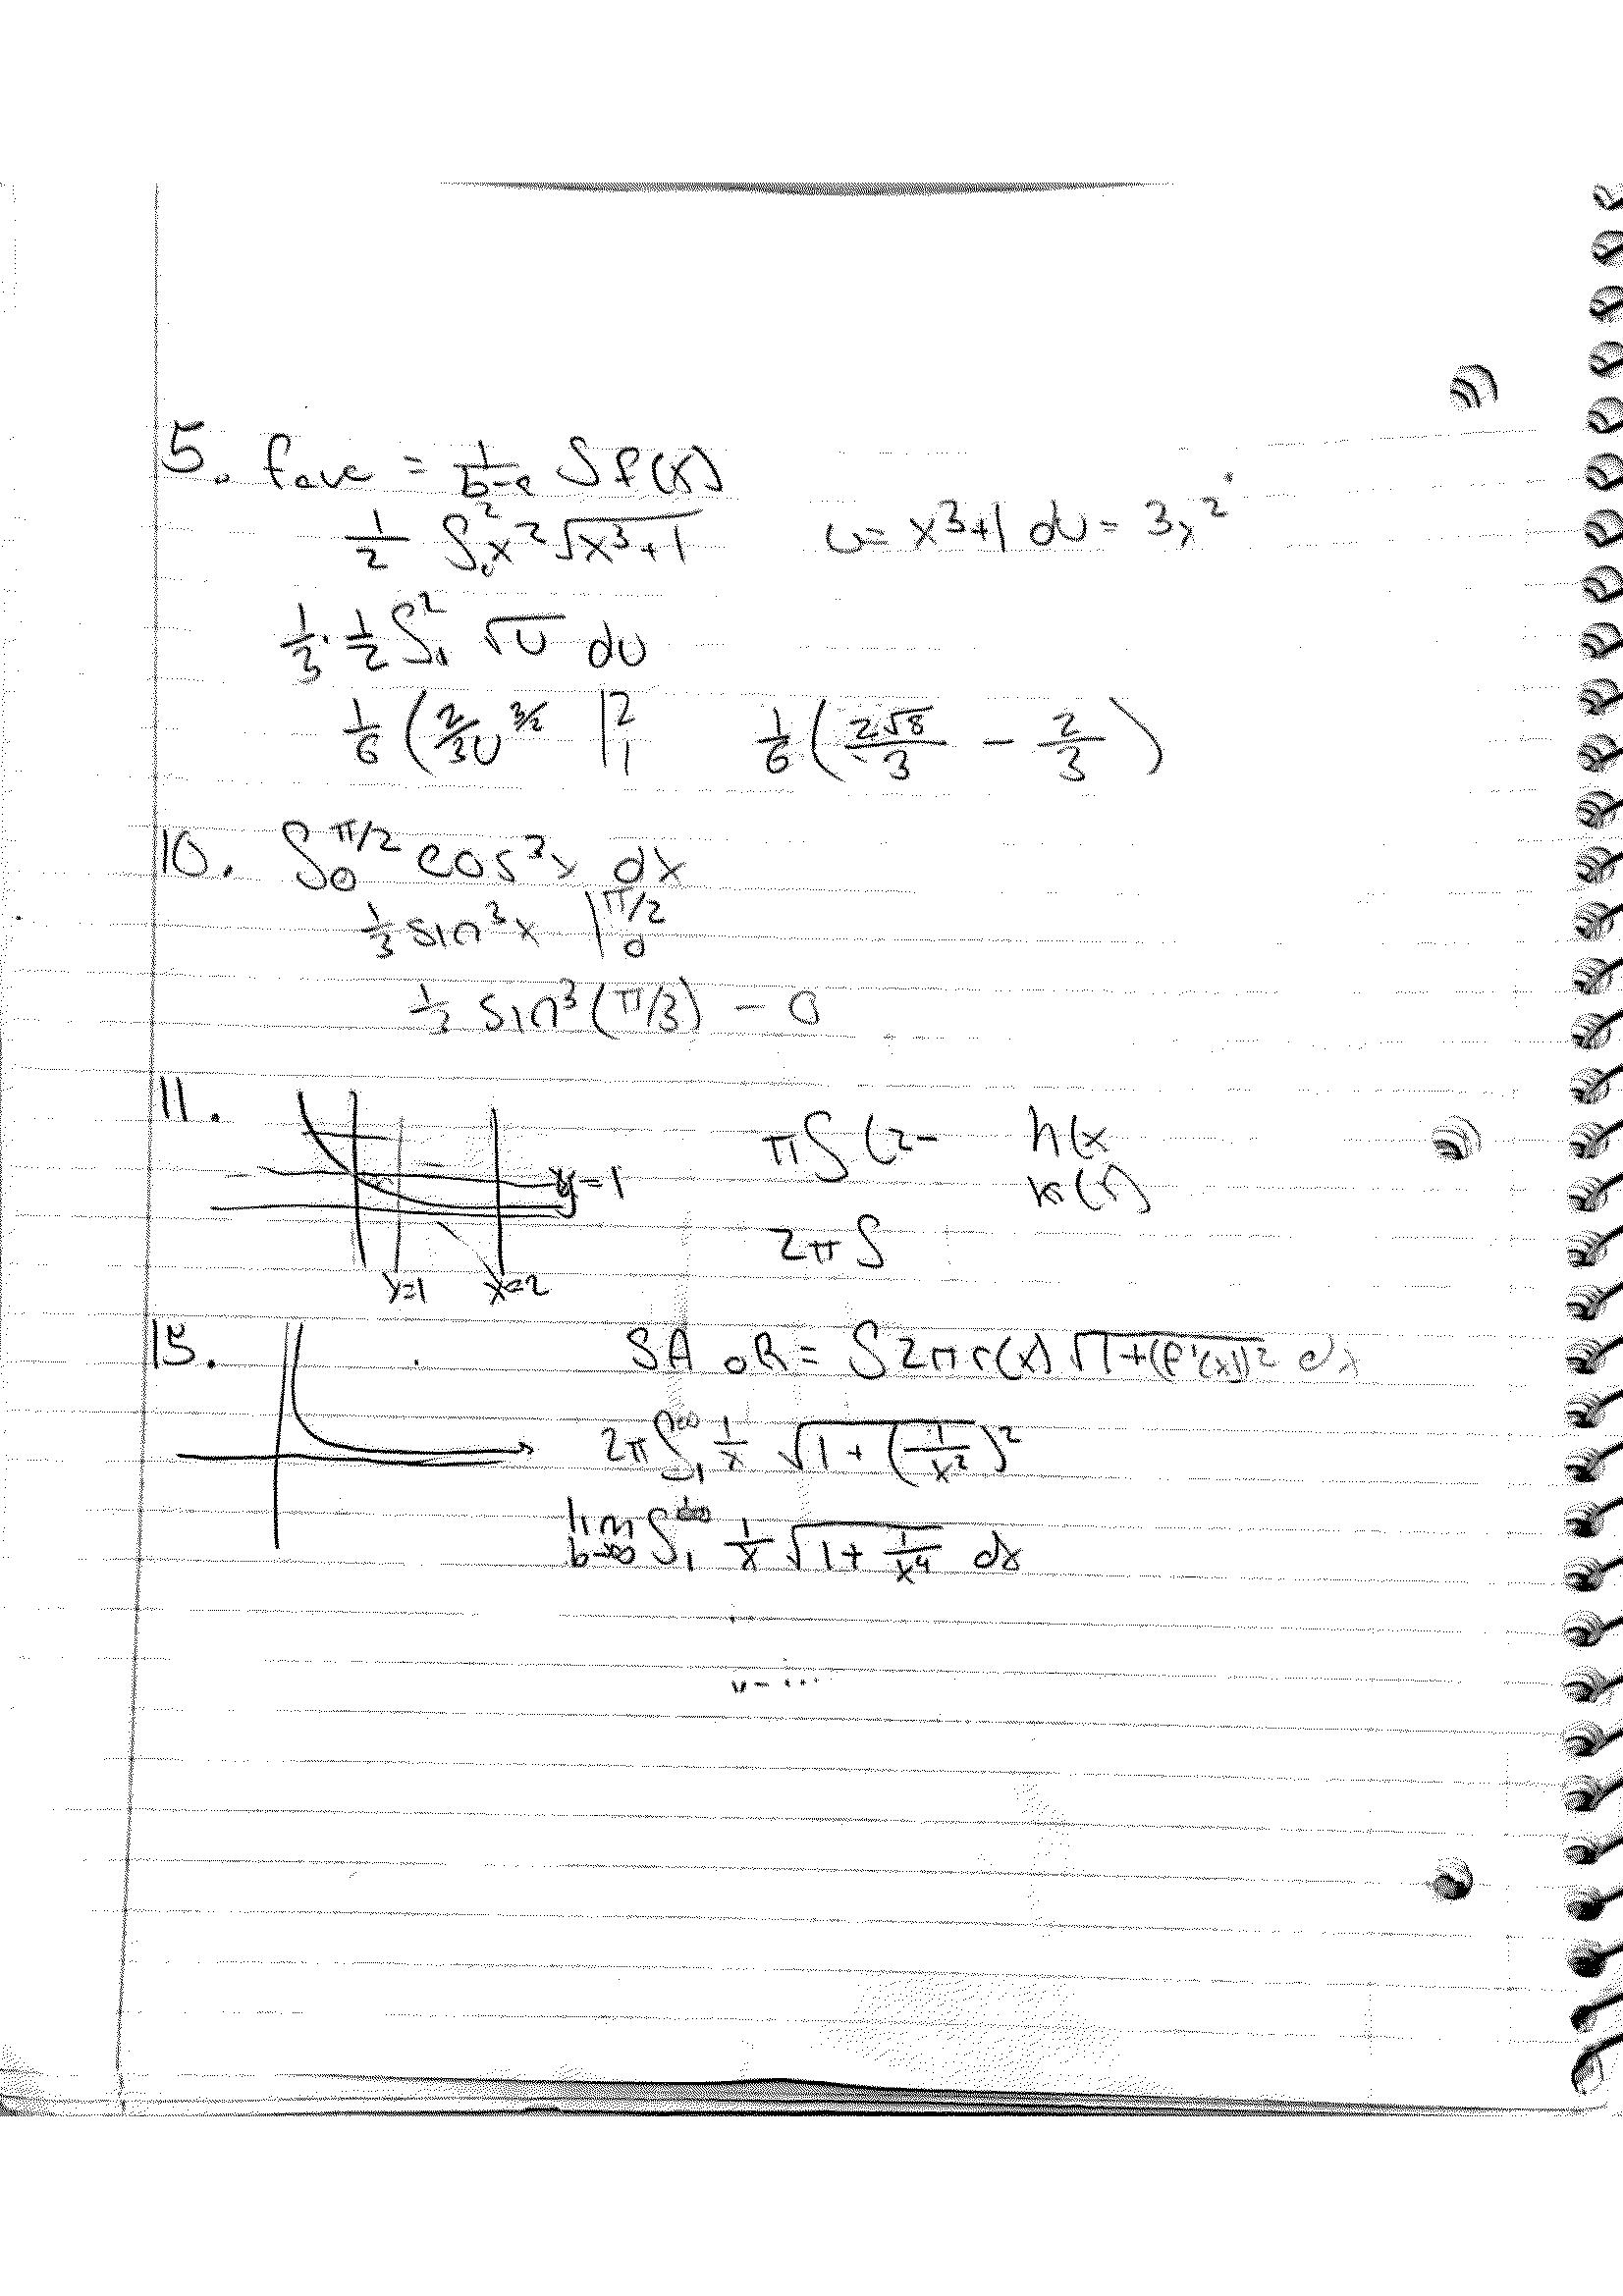 5. fave = 1/b-a ∫ f(x)
1/2 ∫₀² x² √(x³+1)    u = x³+1 du = 3x²
1/3 · 1/2 ∫₁² √u du
1/6 (2/3 u^3/2 |₁²    1/6 (2√8/3 - 2/3)
10. ∫₀^π/2 cos³x dx
1/3 sin³x |₀^π/2
1/3 sin³(π/3) - 0
11.
π∫(2-    h(x
y=1    k(r)
2π∫
y=1    x=2
15.    SA oR = ∫ 2πr(x) √(1+(f'(x))²) dx
2π ∫₁^∞ 1/x √(1+(1/x²)²)
lim b→∞ ∫₁ 1/x √(1+1/x⁴) dx